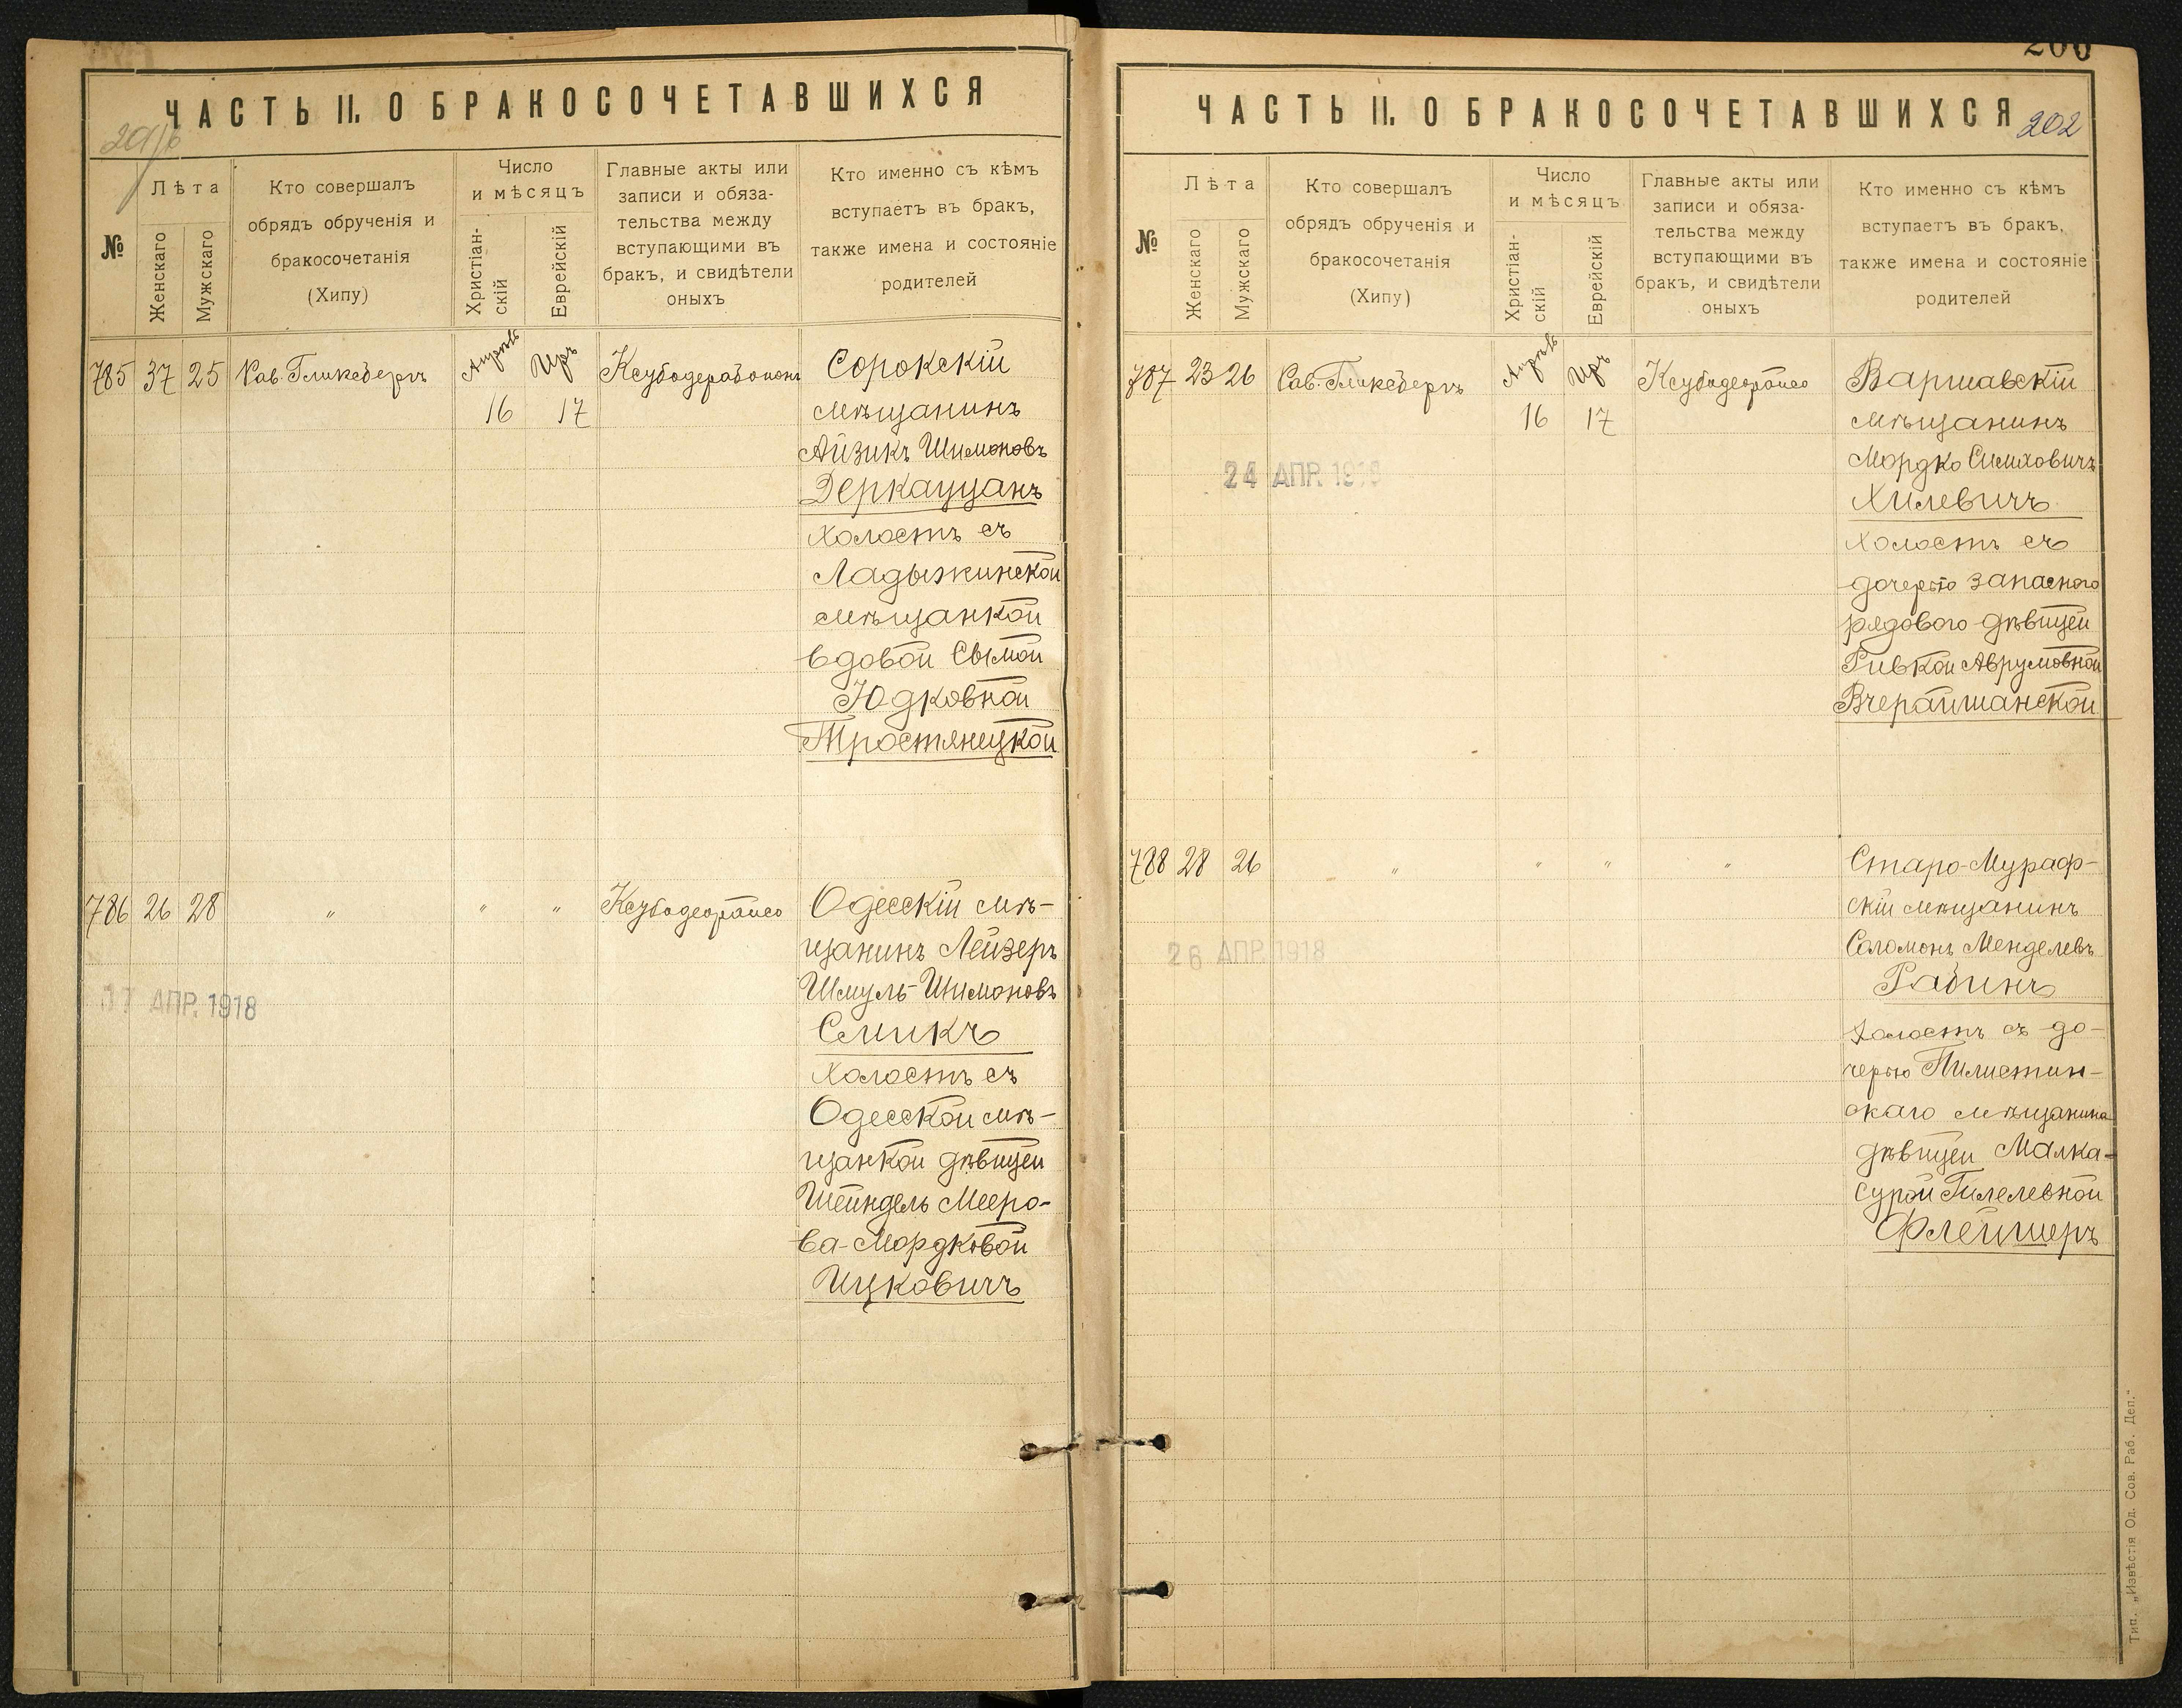 ЧАСТЬ II. О БРАКОСОЧЕТАВШИХСЯ
№
Лѣта
Женскаго
Мужскаго
Кто совершалъ
обрядъ обрученія и
бракосочетанія
(Хипу)
Число
и мѣсяцъ
Христіан-
скій
Еврейскій
Главные акты или
записи и обяза-
тельства между
вступающими въ
бракъ, и свидѣтели
оныхъ
Кто именно съ кѣмъ
вступаетъ въ бракъ,
также имена и состояніе
родителей
785 37 25 Рав. Гликсбергъ Апрѣль Иръ Ксубодерабононъ Сорокскій
16 17 мѣщанинъ
Айзикъ Шимоновъ
Деркауцанъ
холостъ съ
Ладыжинской
мѣщанкой
вдовой Сымой
Юдковной
Тростянецкой
786 26 28 " " " Ксубодеорайсо Одесскій мѣ-
щанинъ Лейзеръ
Шмуль-Шимоновъ
17 АПР. 1918
Смикъ
холостъ съ
Одесской мѣ-
щанкой дѣвицей
Шейндель Мееро-
ва-Мордковой
Ицковичъ
200
ЧАСТЬ II. О БРАКОСОЧЕТАВШИХСЯ
202
№
Лѣта
Женскаго
Мужскаго
Кто совершалъ
обрядъ обрученія и
бракосочетанія
(Хипу)
Число
и мѣсяцъ
Христіан-
скій
Еврейскій
Главные акты или
записи и обяза-
тельства между
вступающими въ
бракъ, и свидѣтели
оныхъ
Кто именно съ кѣмъ
вступаетъ въ бракъ,
также имена и состояніе
родителей
787 23 26 Рав. Гликсбергъ Апрѣль Иръ Ксубодеорайсо Варшавскій
16 17 мѣщанинъ
Мордко Симховичъ
24 АПР. 1918
Хилевичъ
холостъ съ
дочерью запасного
рядового дѣвицей
Ривкой Аврумовной
Вчерайшанской
788 28 26 " " " " Старо-Мураф-
скій мѣщанинъ
Соломонъ Менделевъ
26 АПР. 1918
Рабинъ
холостъ съ до-
черью Пилистин-
скаго мѣщанина
дѣвицей Малка-
Сурой Гилелевной
Флейшеръ
Тип. „Извѣстія Од. Сов. Раб. Деп."